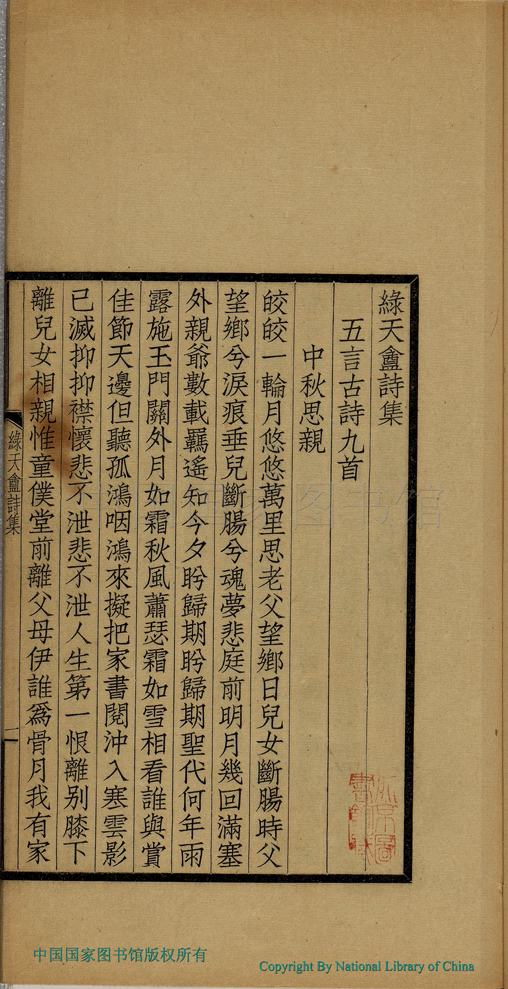 綠天盦詩集
五言古詩九首
中秋思親
皎皎一輪月悠悠萬里思老父望鄉日兒女斷腸時父
望鄉兮淚痕垂兒斷腸兮魂夢悲庭前明月幾回滿塞
外親爺數載羈遙知今夕盻歸期盻歸期聖代何年雨
露施玉門關外月如霜秋風蕭瑟霜如雪相看誰與賞
佳節天邊但聽孤鴻咽鴻來擬把家書閱沖入塞雲影
已滅抑抑襟懷悲不泄悲不泄人生第一恨離別膝下
離兒女相親惟童僕堂前離父母伊誰爲骨月我有家
綠天盦詩集
一
图书馆
中国国家图书馆版权所有
Copyright By National Library of China